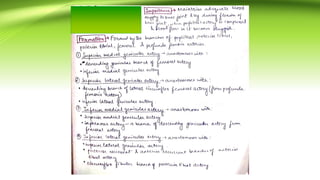 Importance → Maintains adequate blood
supply to knee joint & leg during flexion of
knee joint, when popliteal artery is compressed
& blood flow in it becomes sluggish.
Formation → Formed by the branches of popliteal, anterior tibial,
posterior tibial, femoral & profunda femoris arteries
① Superior medial genicular artery → anastomoses with:
• descending genicular branch of femoral artery
• inferior medial genicular artery
② Superior lateral genicular artery → anastomoses with:
• descending branch of lateral circumflex femoral artery (from profunda
femoris artery)
• inferior lateral genicular artery
③ Inferior medial genicular artery → anastomoses with:
• superior medial genicular artery
• saphenous artery → a branch of descending genicular artery from
femoral artery
④ Inferior lateral genicular artery → anastomoses with:
• superior lateral genicular artery
• posterior recurrent & anterior recurrent branches of anterior
tibial artery
• circumflex fibular branch of posterior tibial artery